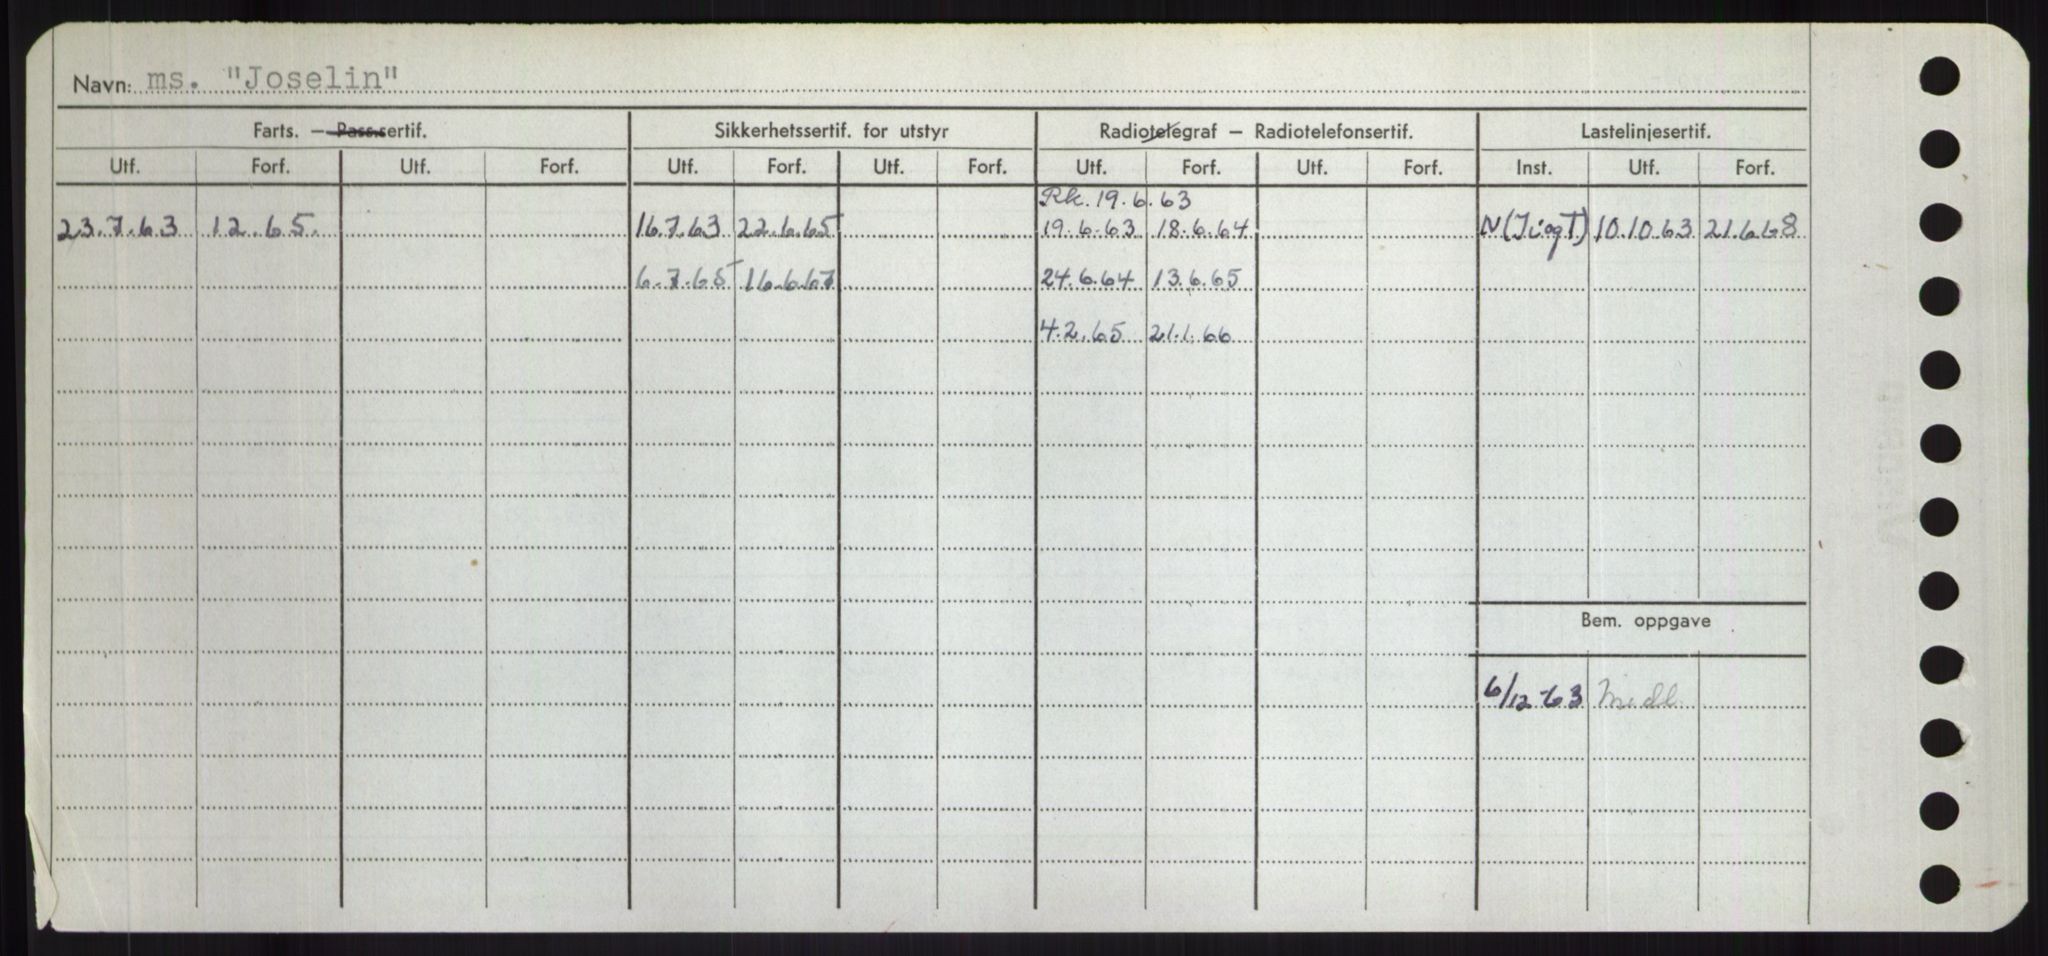 Navn: ms. "Joselin"
Farts. — Pass.sertif. Sikkerhetssertif. for utstyr Radiotelegraf — Radiotelefonsertif. Lastelinjesertif.
Utf. Forf. Utf. Forf. Utf. Forf. Utf. Forf. Utf. Forf. Utf. Forf. Inst. Utf. Forf.
Rk. 19.6.63
23.7.63 12.6.65. 16.7.63 22.6.65 19.6.63 18.6.64 N (J i og T) 10.10.63 21.6.68
6.7.65 16.6.67 24.6.64 13.6.65
4.2.65 21.1.66
Bem. oppgave
6/12-63 Medl.